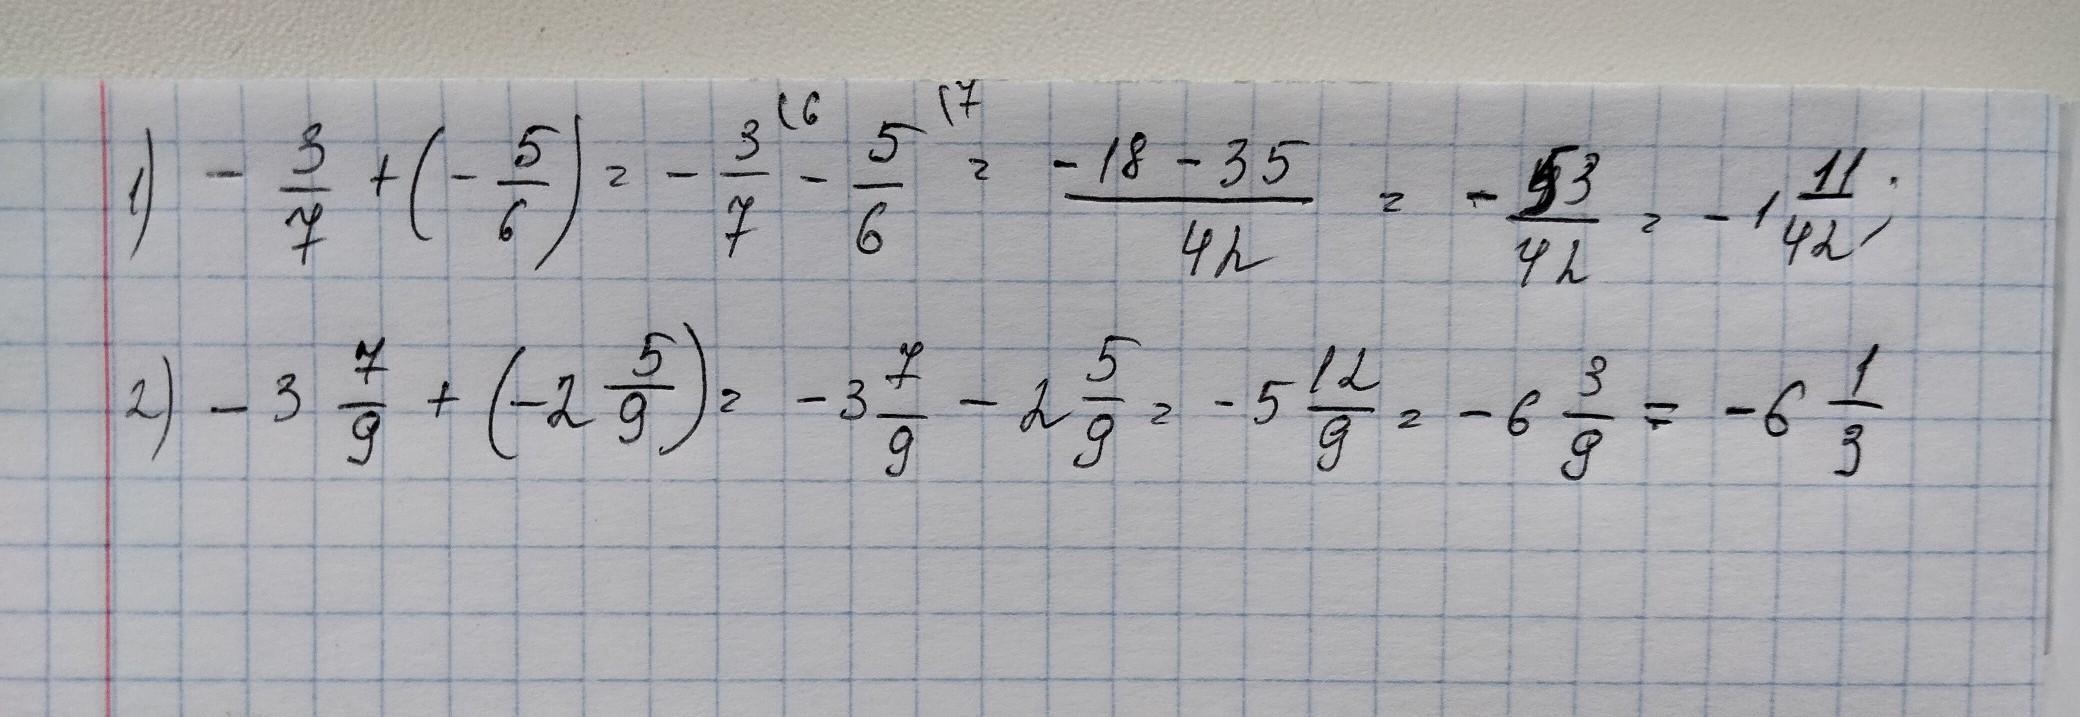 1) - 3/7 + (- 5/6) = - 3/7 (6 - 5/6 (7 = (-18 - 35)/42 = - 53/42 = - 1 11/42;
2) - 3 7/9 + (-2 5/9) = - 3 7/9 - 2 5/9 = - 5 12/9 = - 6 3/9 = - 6 1/3